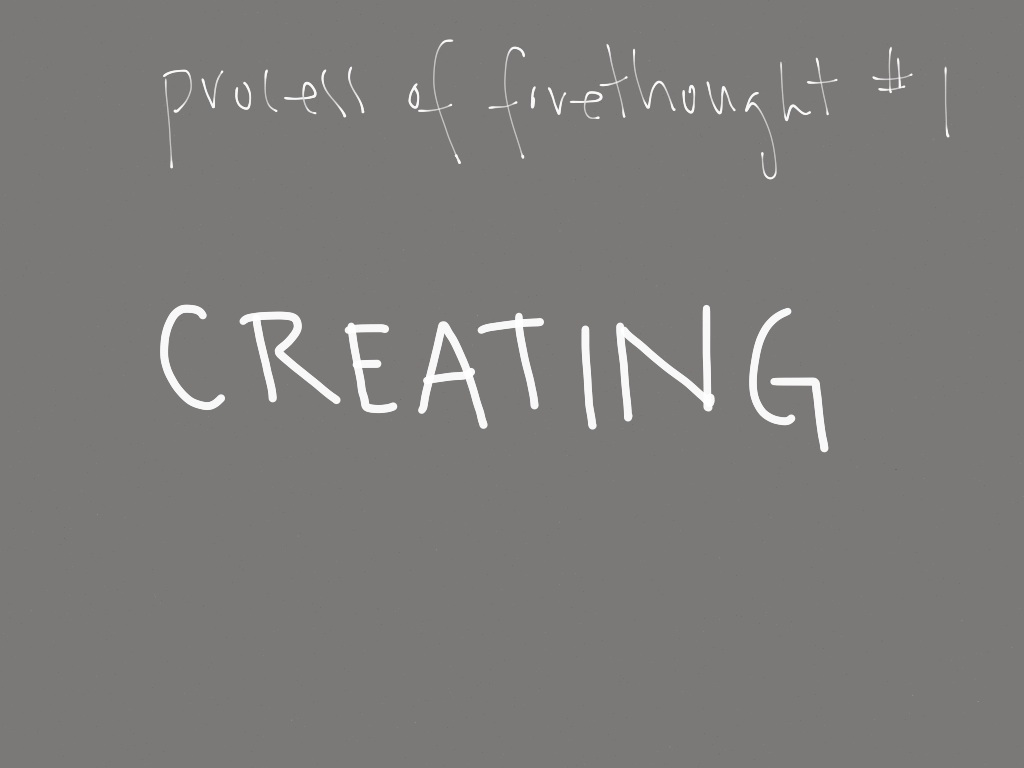 process of firethought #1
CREATING